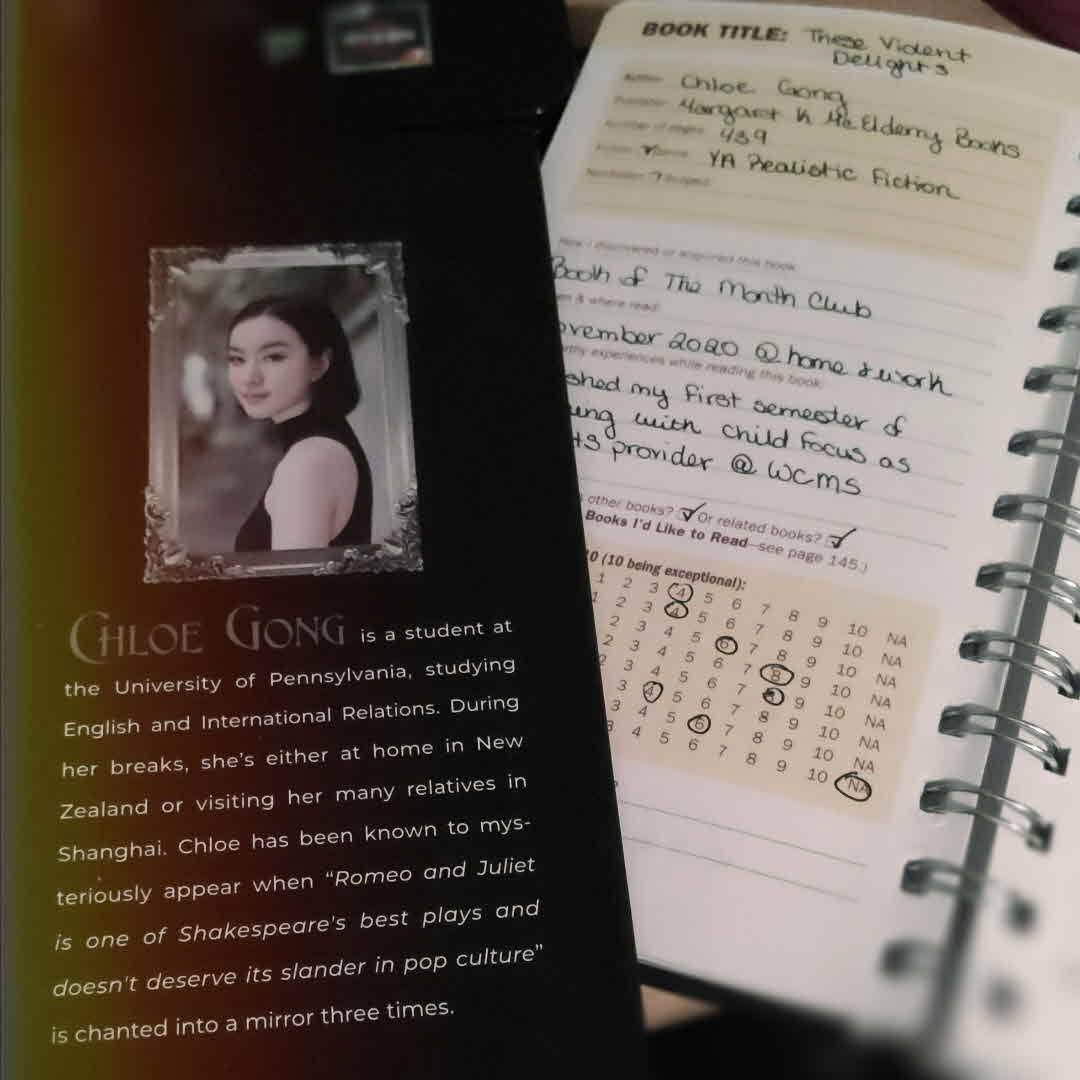 CHLOE GONG is a student at
the University of Pennsylvania, studying
English and International Relations. During
her breaks, she's either at home in New
Zealand or visiting her many relatives in
Shanghai. Chloe has been known to mys-
teriously appear when "Romeo and Juliet
is one of Shakespeare's best plays and
doesn't deserve its slander in pop culture"
is chanted into a mirror three times.
BOOK TITLE: These Violent
Delights
Author Chloe Gong
Publisher Margaret K McElderry Books
Number of pages 439
Fiction Genre YA Realistic Fiction
Nonfiction Subject
How I discovered or acquired this book
Book of The Month Club
en & where read
ovember 2020 @ home & work
rthy experiences while reading this book:
shed my first semester of
ung with child focus as
ts provider @ WCMS
other books? Or related books?
Books I'd Like to Read—see page 145.)
10 (10 being exceptional):
1 2 3 4 5 6 7 8 9 10 NA
1 2 3 4 5 6 7 8 9 10 NA
2 3 4 5 6 7 8 9 10 NA
2 3 4 5 6 7 8 9 10 NA
2 3 4 5 6 7 8 9 10 NA
3 4 5 6 7 8 9 10 NA
3 4 5 6 7 8 9 10 NA
3 4 5 6 7 8 9 10 NA